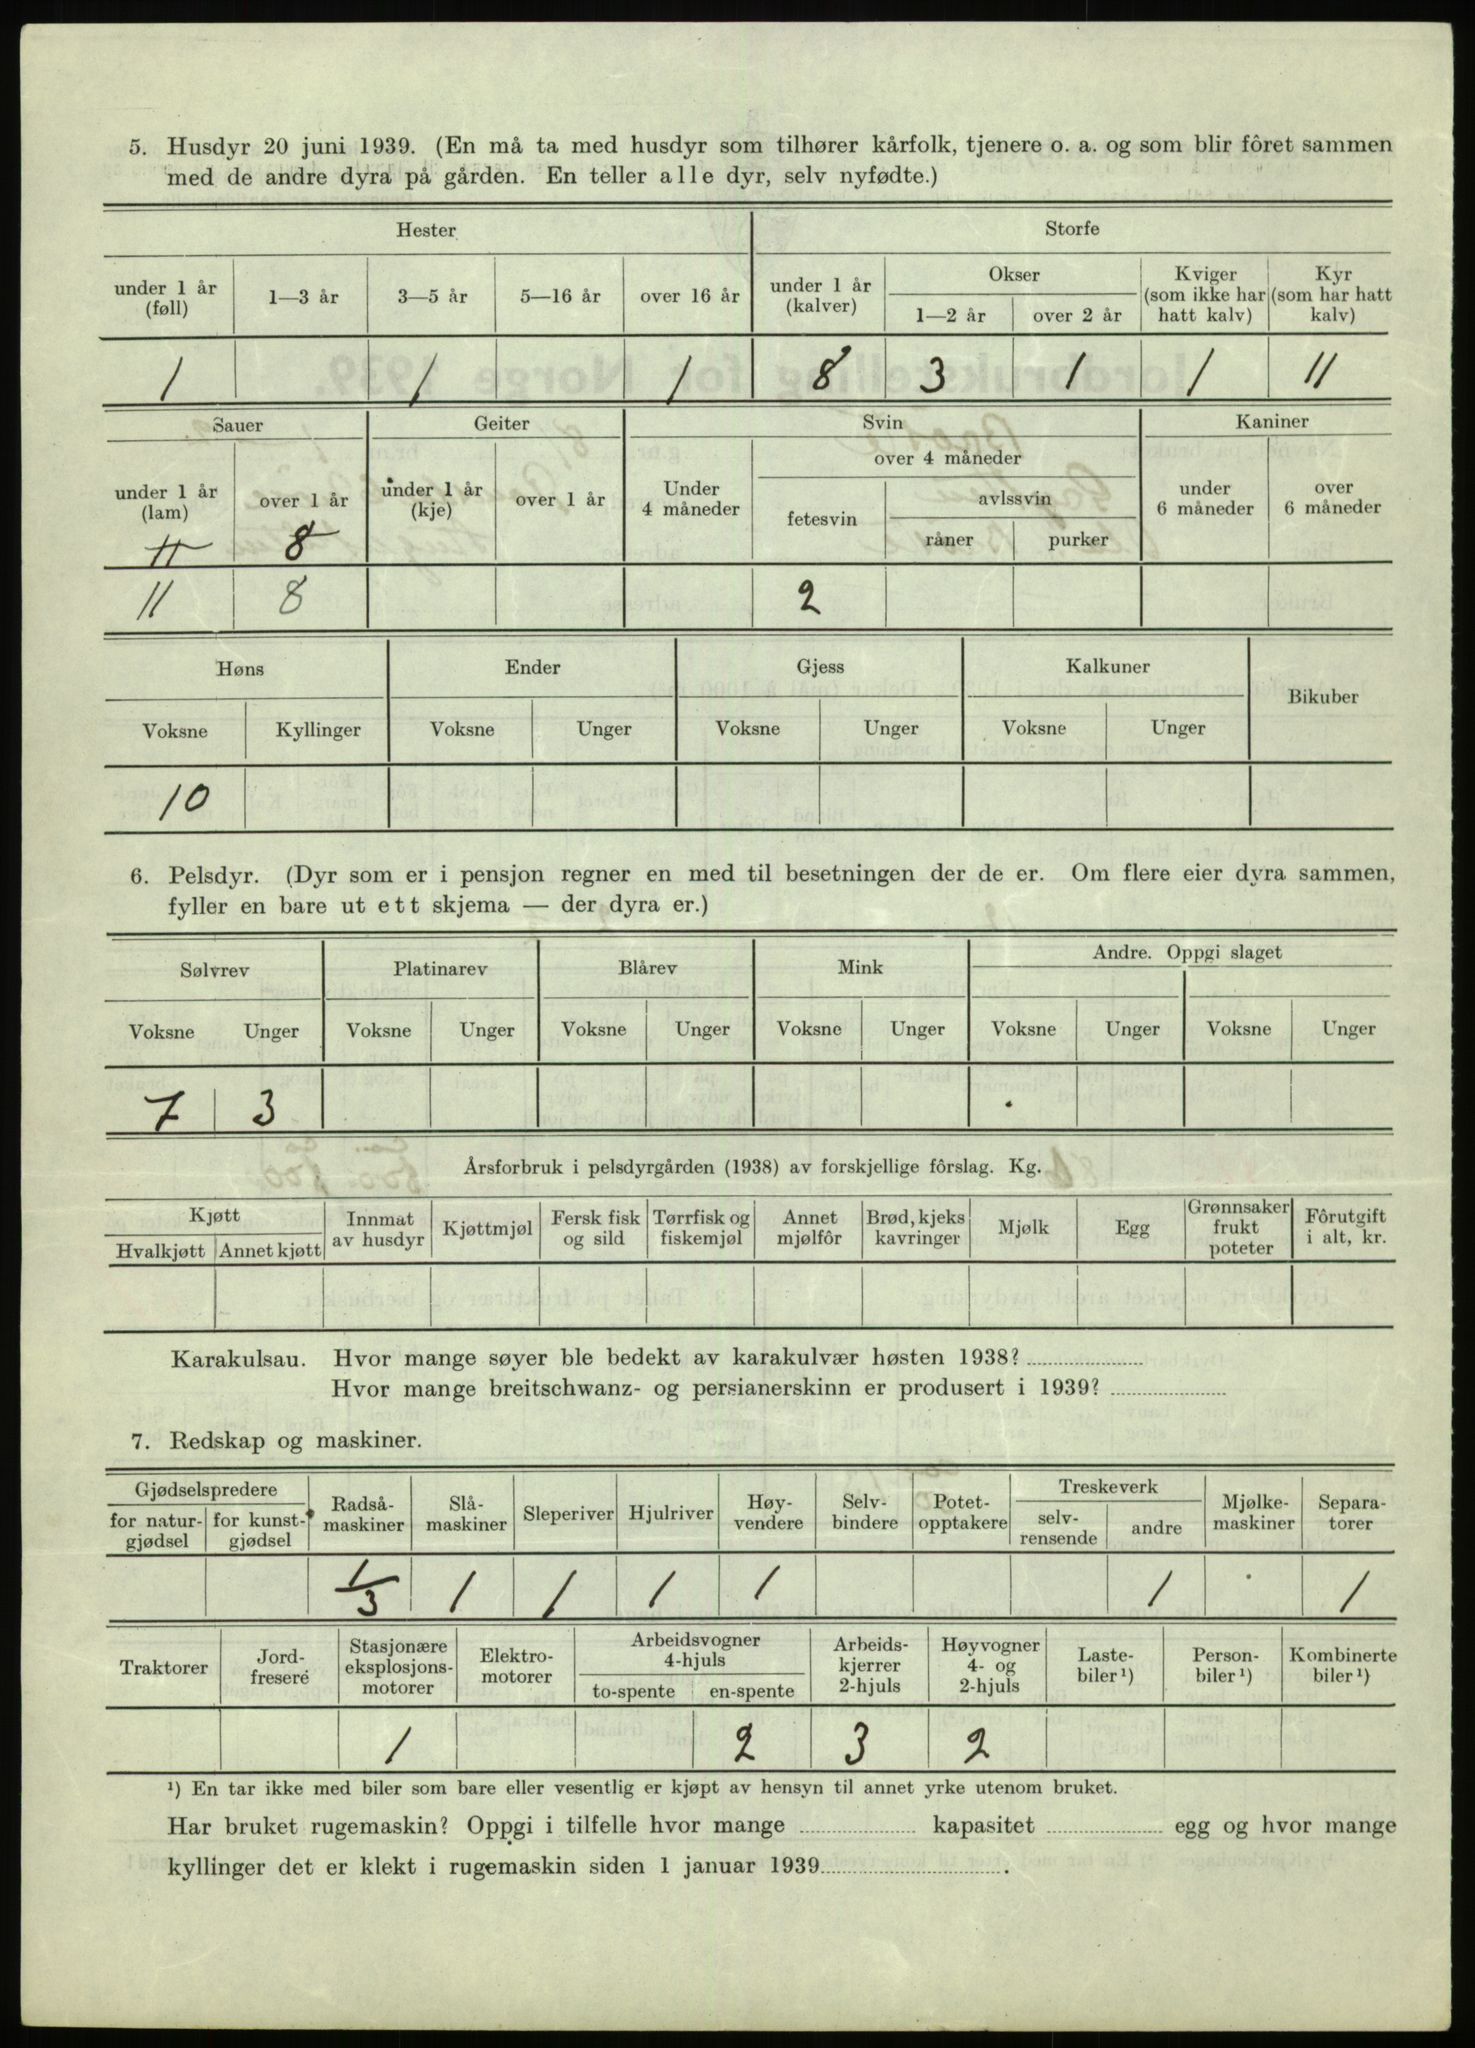 5. Husdyr 20 juni 1939. (En må ta med husdyr som tilhører kårfolk, tjenere o. a. og som blir fôret sammen
med de andre dyra på gården. En teller alle dyr, selv nyfødte.)
Hester Storfe
under 1 år (føll) 1—3 år 3—5 år 5—16 år over 16 år under 1 år (kalver) Okser 1—2 år over 2 år Kviger (som ikke har hatt kalv) Kyr (som har hatt kalv)
1 1 1 8 3 1 1 11
Sauer Geiter Svin Kaniner
over 4 måneder
under 1 år (lam) over 1 år under 1 år (kje) over 1 år Under 4 måneder fetesvin avlssvin råner purker under 6 måneder over 6 måneder
11 8
11 8 2
Høns Ender Gjess Kalkuner Bikuber
Voksne Kyllinger Voksne Unger Voksne Unger Voksne Unger
10
6. Pelsdyr. (Dyr som er i pensjon regner en med til besetningen der de er. Om flere eier dyra sammen,
fyller en bare ut ett skjema — der dyra er.)
Sølvrev Platinarev Blårev Mink Andre. Oppgi slaget
Voksne Unger Voksne Unger Voksne Unger Voksne Unger Voksne Unger Voksne Unger
7 3
Årsforbruk i pelsdyrgården (1938) av forskjellige fôrslag. Kg.
Kjøtt Hvalkjøtt Annet kjøtt Innmat av husdyr Kjøttmjøl Fersk fisk og sild Tørrfisk og fiskemjøl Annet mjølfôr Brød, kjeks kavringer Mjølk Egg Grønnsaker frukt poteter Fôrutgift i alt, kr.
Karakulsau. Hvor mange søyer ble bedekt av karakulvær høsten 1938?
Hvor mange breitschwanz- og persianerskinn er produsert i 1939?
7. Redskap og maskiner.
Gjødselspredere for natur-gjødsel for kunst-gjødsel Radså-maskiner Slå-maskiner Sleperiver Hjulriver Høy-vendere Selv-bindere Potet-opptakere Treskeverk selv-rensende andre Mjølke-maskiner Separa-torer
1/3 1 1 1 1 1 1
Traktorer Jord-freseré Stasjonære eksplosjons-motorer Elektro-motorer Arbeidsvogner 4-hjuls to-spente en-spente Arbeids-kjerrer 2-hjuls Høyvogner 4- og 2-hjuls Laste-biler¹) Person-biler¹) Kombinerte biler¹)
1 2 3 2
¹) En tar ikke med biler som bare eller vesentlig er kjøpt av hensyn til annet yrke utenom bruket.
Har bruket rugemaskin? Oppgi i tilfelle hvor mange kapasitet egg og hvor mange
kyllinger det er klekt i rugemaskin siden 1 januar 1939.